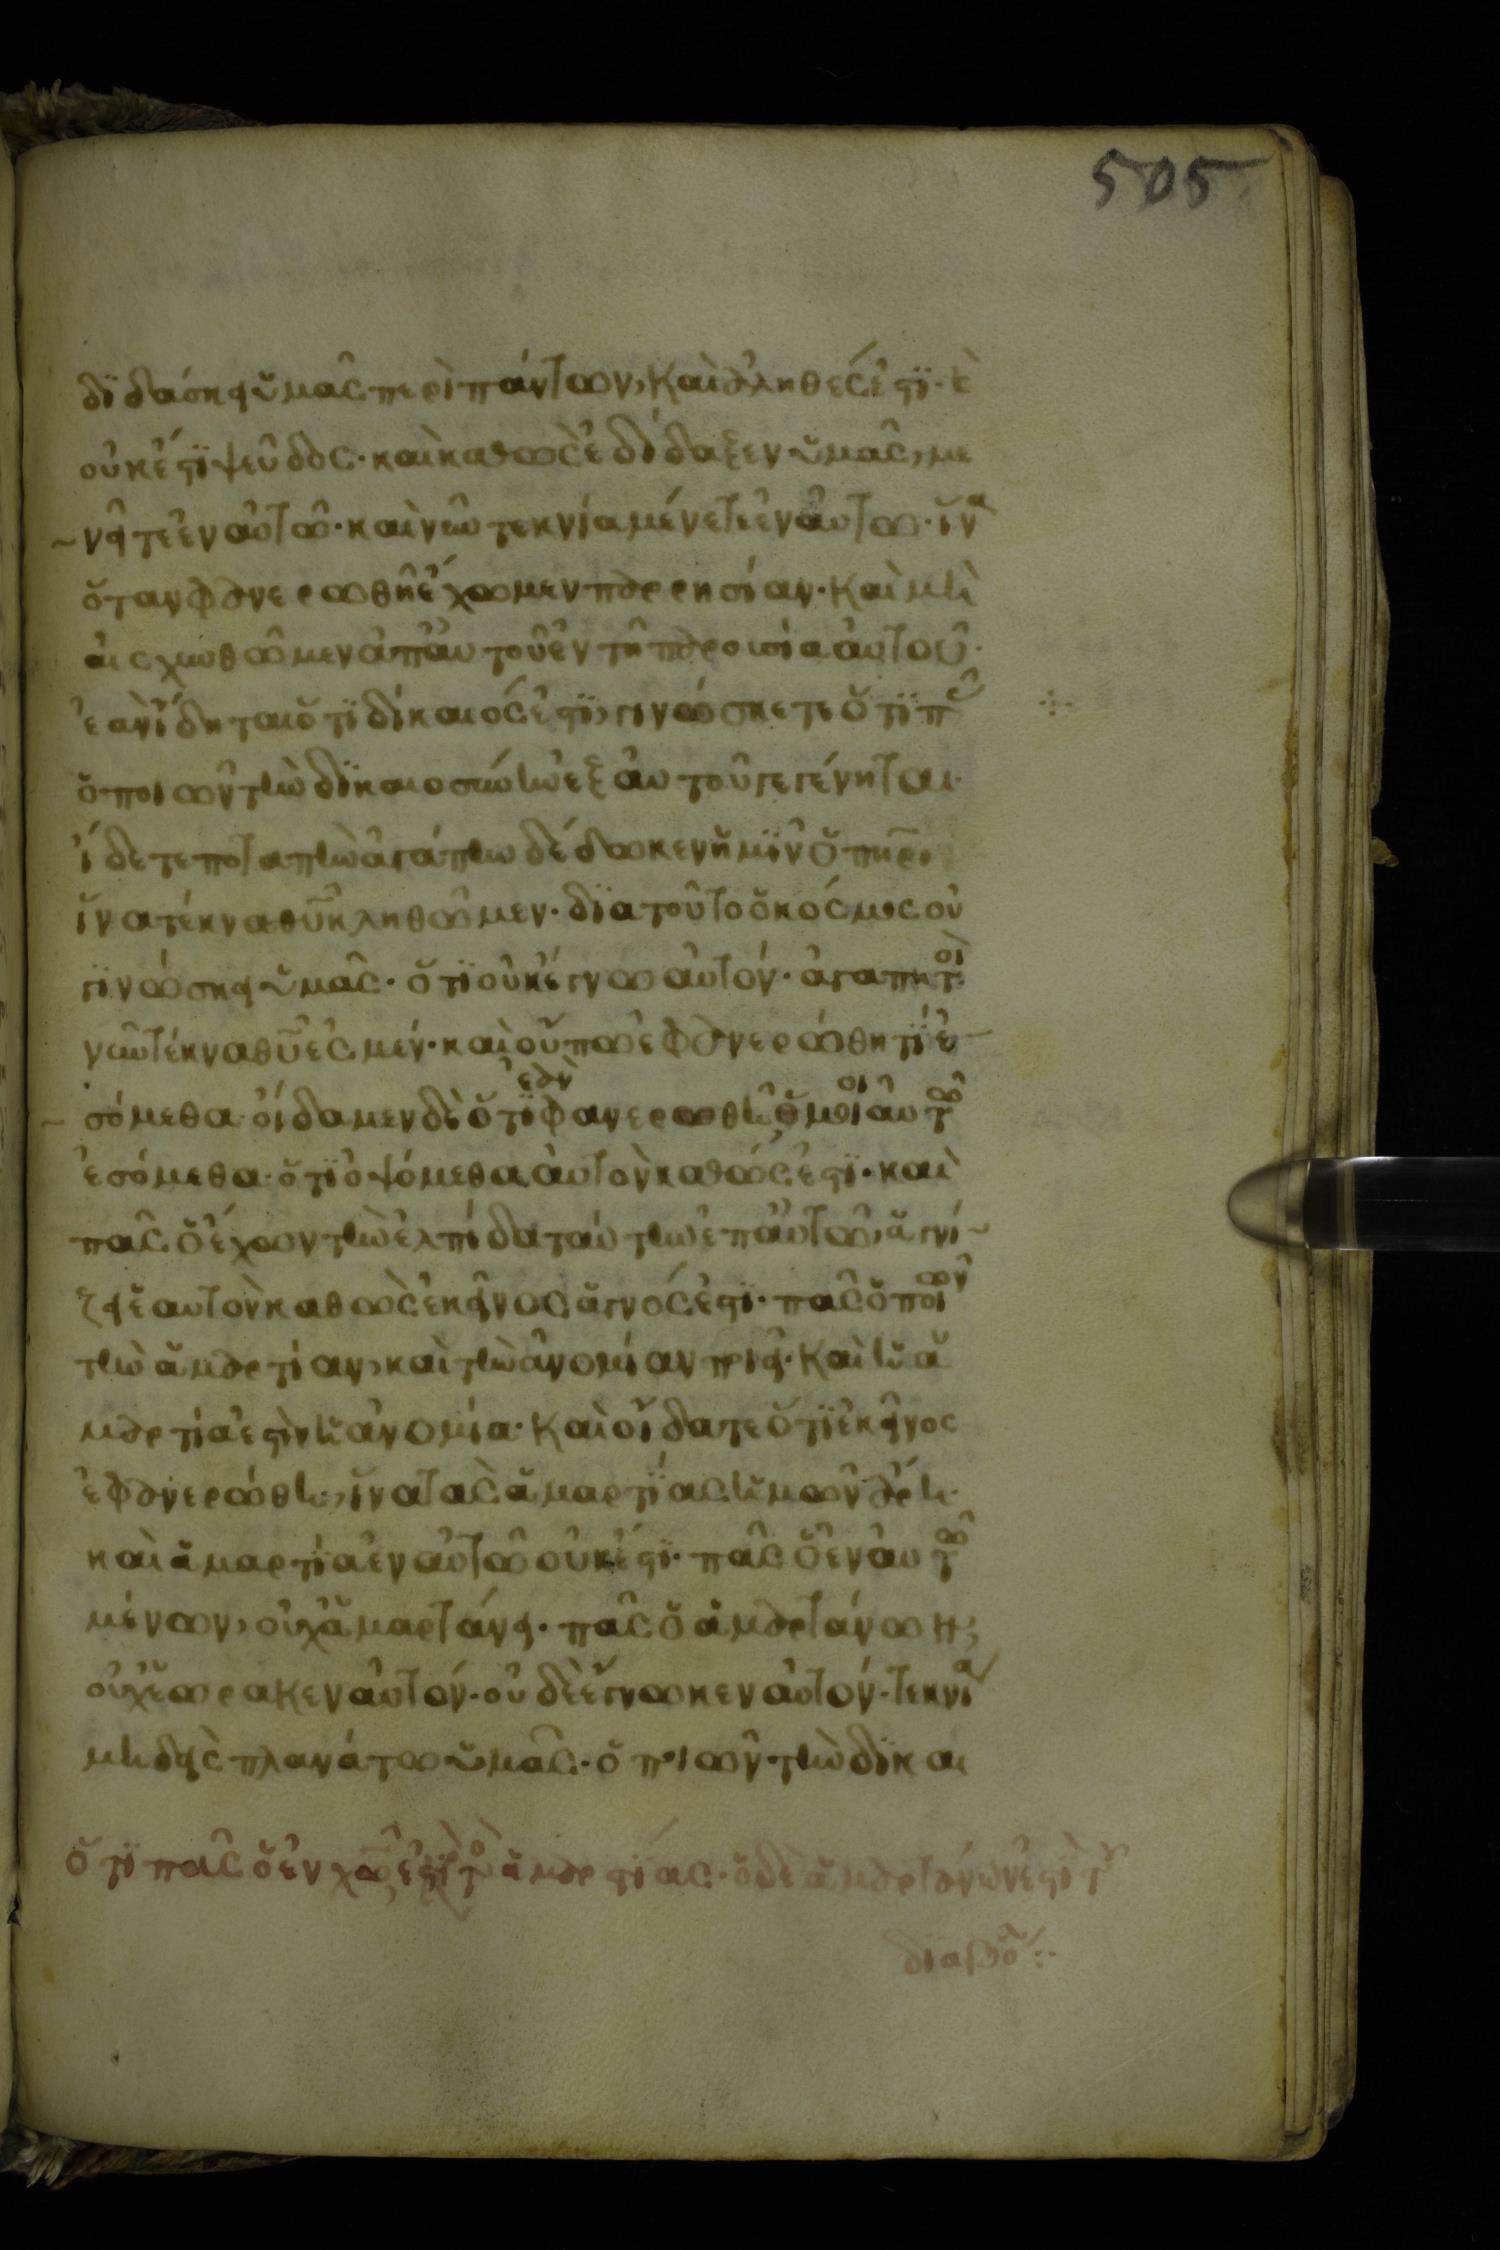 505
διδάσκει ὑμᾶς περὶ πάντων, καὶ ἀληθές ἐστι· κ(αὶ)
οὐκ ἔστι ψεῦδος· καὶ καθὼς ἐδίδαξεν ὑμᾶς, με
νεῖτε ἐν αὐτῷ· καὶ νῦν τεκνία μένετε ἐν αὐτῷ· ἵνα
ὅταν φανερωθῇ ἔχωμεν παρρησίαν· καὶ μὴ
αἰσχυνθῶμεν ἀπ' αὐτοῦ ἐν τῇ παρουσίᾳ αὐτοῦ·
ἐὰν ἴδηται ὅτι δίκαιός ἐστι, γινώσκετε ὅτι π(ᾶς)
ὁ ποιῶν τὴν δικαιοσύνην ἐξ αὐτοῦ γεγένηται·
ἴδετε ποταπὴν ἀγάπην δέδωκεν ἡμῖν ὁ πηρ·
ἵνα τέκνα θυ κληθῶμεν· διὰ τοῦτο ὁ κόσμος οὐ
γινώσκει ὑμᾶς· ὅτι οὐκ ἔγνω αὐτόν· ἀγαπητοὶ
νῦν τέκνα θυ ἐσμέν· καὶ οὔπω ἐφανερώθη τί ἐ
σόμεθα· οἴδαμεν δὲ ὅτι ἐὰν φανερωθῇ ὅμοιοι αὐτῷ
ἐσόμεθα· ὅτι ὀψόμεθα αὐτὸν καθώς ἐστι· καὶ
πᾶς ὁ ἔχων τὴν ἐλπίδα ταύτην ἐπ' αὐτῷ, ἁγνί
ζει ἑαυτὸν καθὼς ἐκεῖνος ἁγνός ἐστι· πᾶς ὁ ποιῶν
τὴν ἁμαρτίαν, καὶ τὴν ἀνομίαν ποιεῖ· καὶ ἡ ἁ
μαρτία ἐστὶν ἡ ἀνομία· καὶ οἴδατε ὅτι ἐκεῖνος
ἐφανερώθη, ἵνα τὰς ἁμαρτίας ἡμῶν ἄρη·
καὶ ἁμαρτία ἐν αὐτῷ οὐκ ἔστι· πᾶς ὁ ἐν αὐτῷ
μένων, οὐχ ἁμαρτάνει· πᾶς ὁ ἁμαρτάνων
οὐχ ἑώρακεν αὐτόν· οὐδὲ ἔγνωκεν αὐτόν· τεκνία
μηδεὶς πλανάτω ὑμᾶς· ὁ ποιῶν τὴν δικαι
ὅτι πᾶς ὁ ἐν χω ἐστὶ ἁμαρτίας· ὁ δὲ ἁμαρτάνων ἐστὶ τοῦ
διαβόλ(ου)